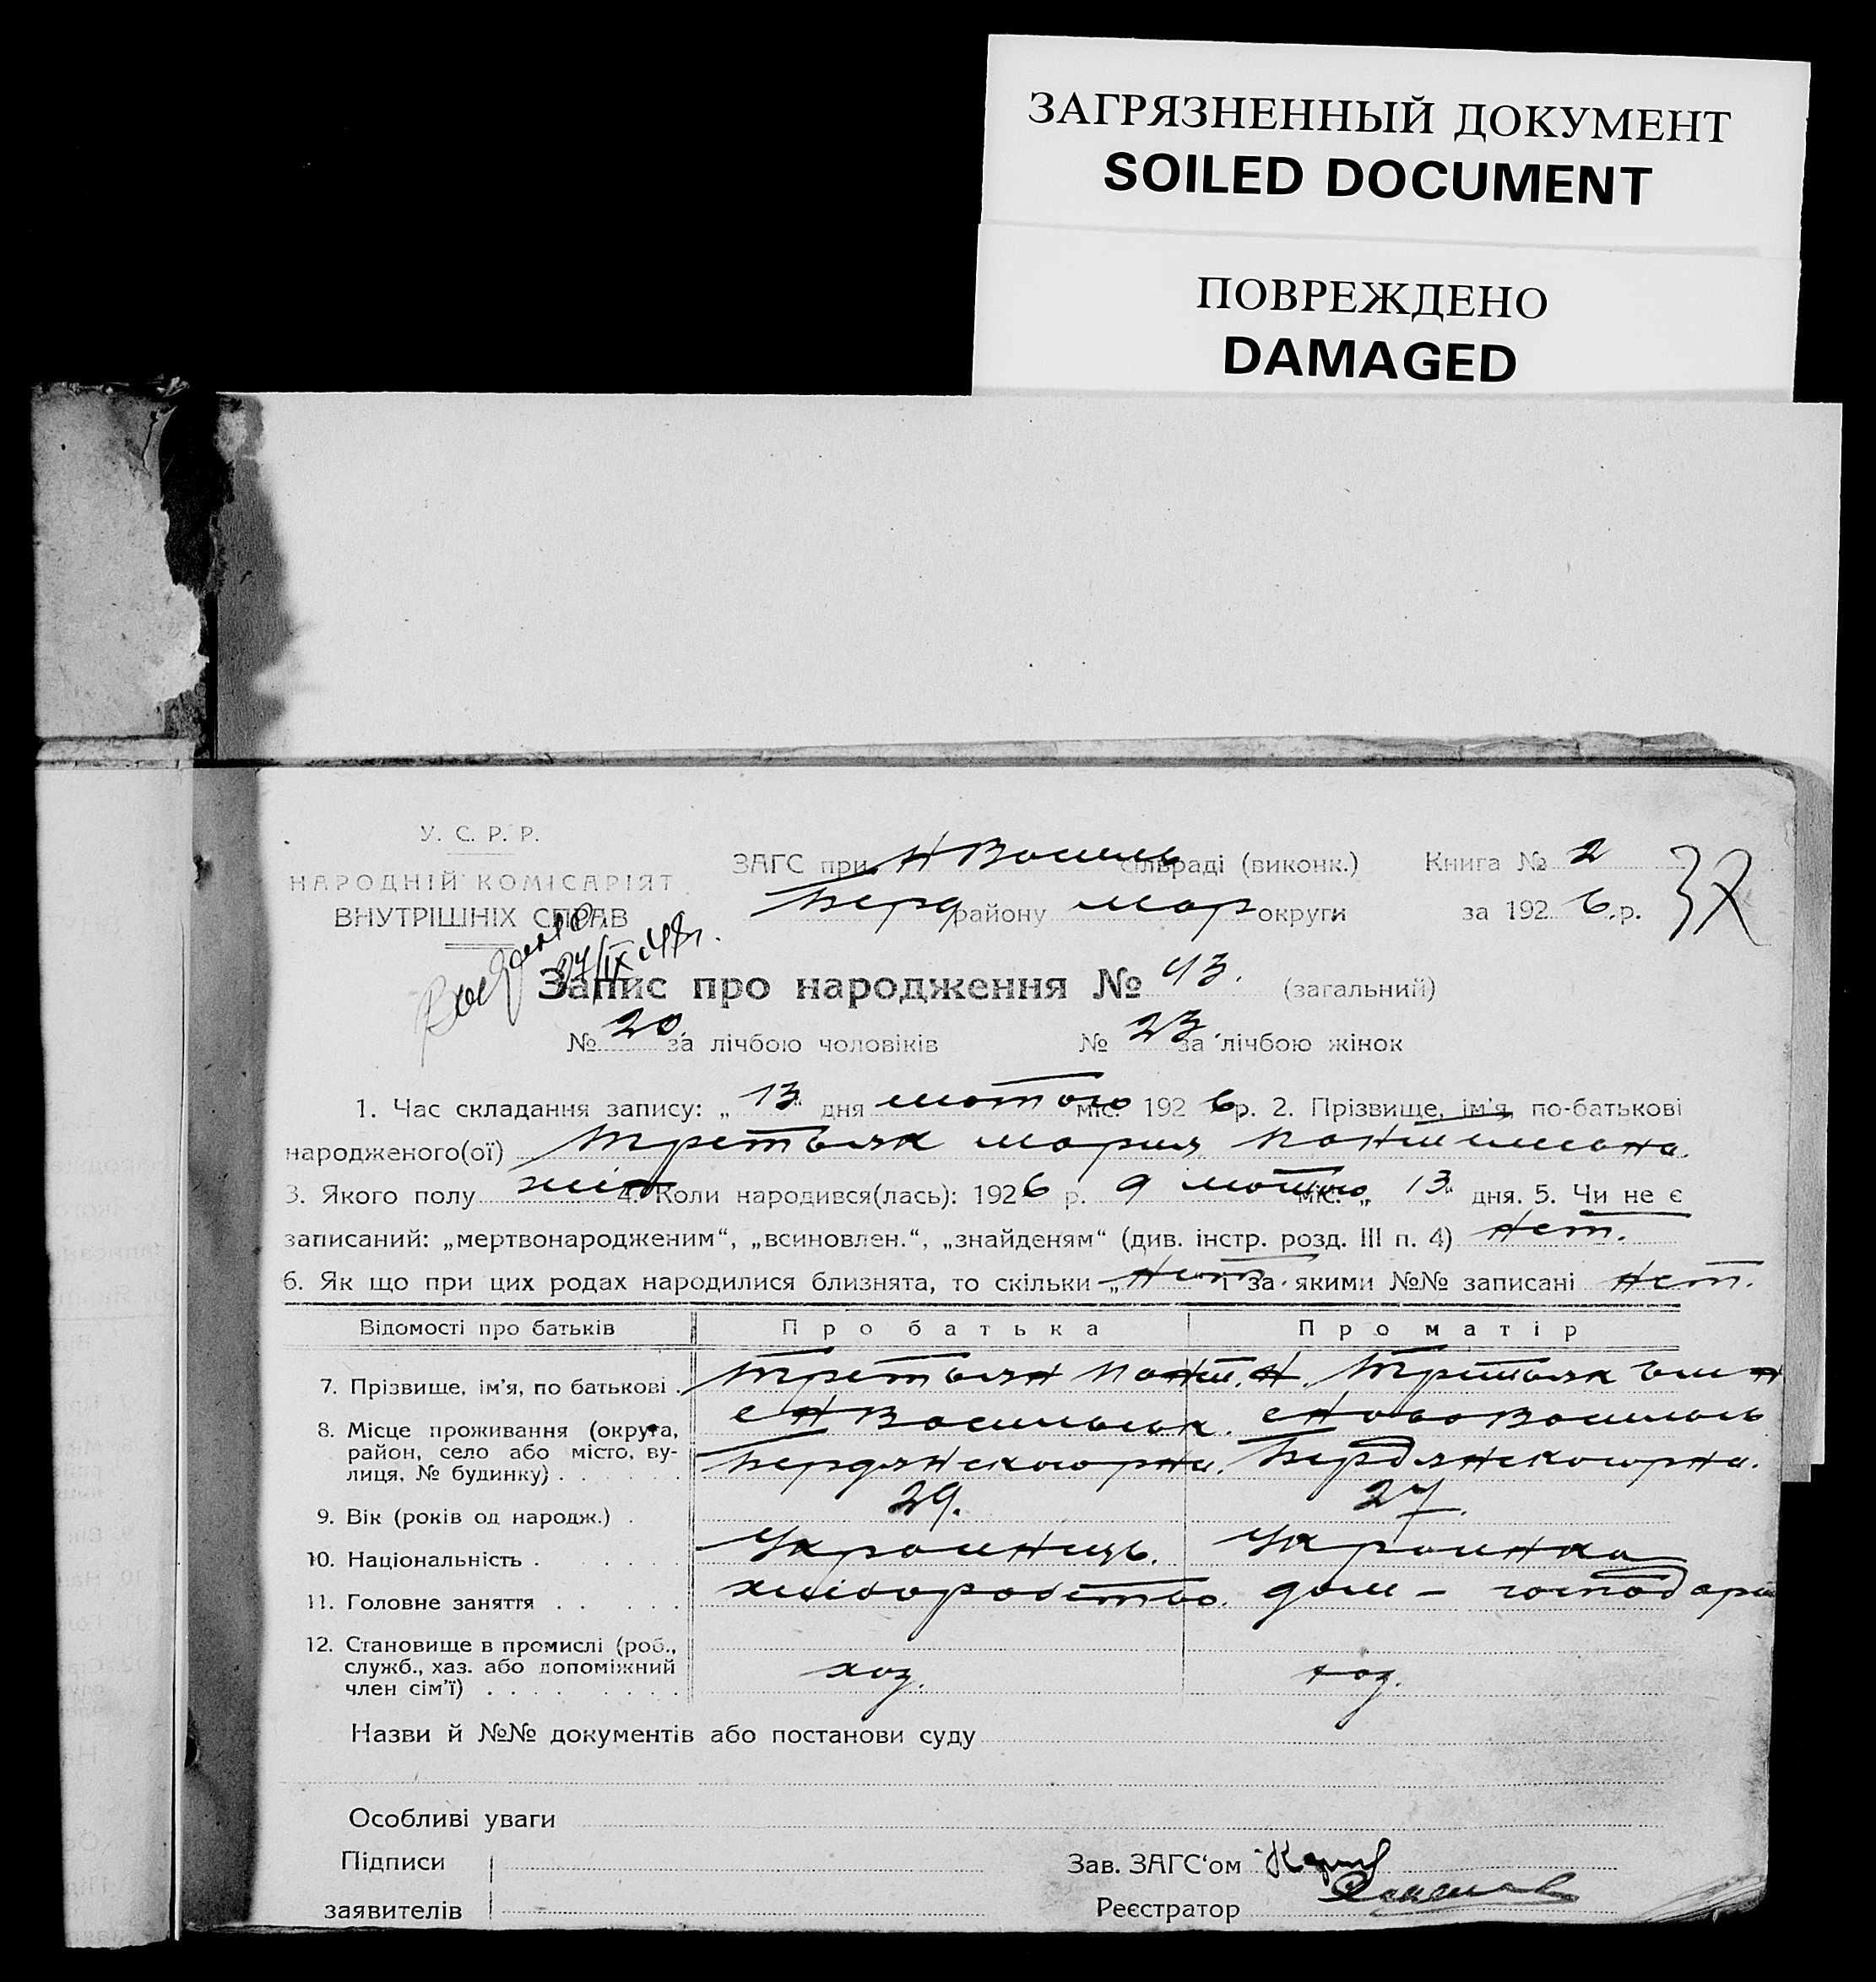 ЗАГРЯЗНЕННЫЙ ДОКУМЕНТ
SOILED DOCUMENT
ПОВРЕЖДЕНО
DAMAGED
У. С. Р. Р.
НАРОДНІЙ КОМІСАРІЯТ
ВНУТРІШНІХ СПРАВ
ЗАГС при Н Василь сільраді (виконк.) Книга № 2
Берд району Мар округи за 1926.р.
37
27/IX 48г.
Запис про народження № 43. (загальний)
№ 20. за лічбою чоловіків № 23. за лічбою жінок
1. Час складання запису: „13“ дня лютого міс. 1926 р. 2. Прізвище, ім'я, по-батькові
народженого(ої) Третьяк Мария
3. Якого полу жін 4. Коли народився(лась): 1926 р. 9 лютого міс. „13“ дня. 5. Чи не є
записаний: „мертвонародженим“, „всиновлен.“, „знайденям“ (див. інстр. розд. III п. 4) Нет.
6. Як що при цих родах народилися близнята, то скільки „Нет. і за якими №№ записані Нет.
Відомості про батьків Про батька Про матір
7. Прізвище, ім'я, по батькові . Третьяк Пант. Н. Третьяк
8. Місце проживання (округа, район, село або місто, вулиця, № будинку) . . . . . . с Н Васильськ. с Ново Василь
Бердянского рна. Бердянского рна.
9. Вік (років од народж.) . 29. 27.
10. Національність . . . . . Українець. Українка
11. Головне заняття . . . . . хліборобство. дом – господар
12. Становище в промислі (роб., служб., хаз. або допоміжний член сім'ї) . . . . . . . хоз. хоз.
Назви й №№ документів або постанови суду
Особливі уваги
Підписи
заявителів
Зав. ЗАГС'ом
Реєстратор